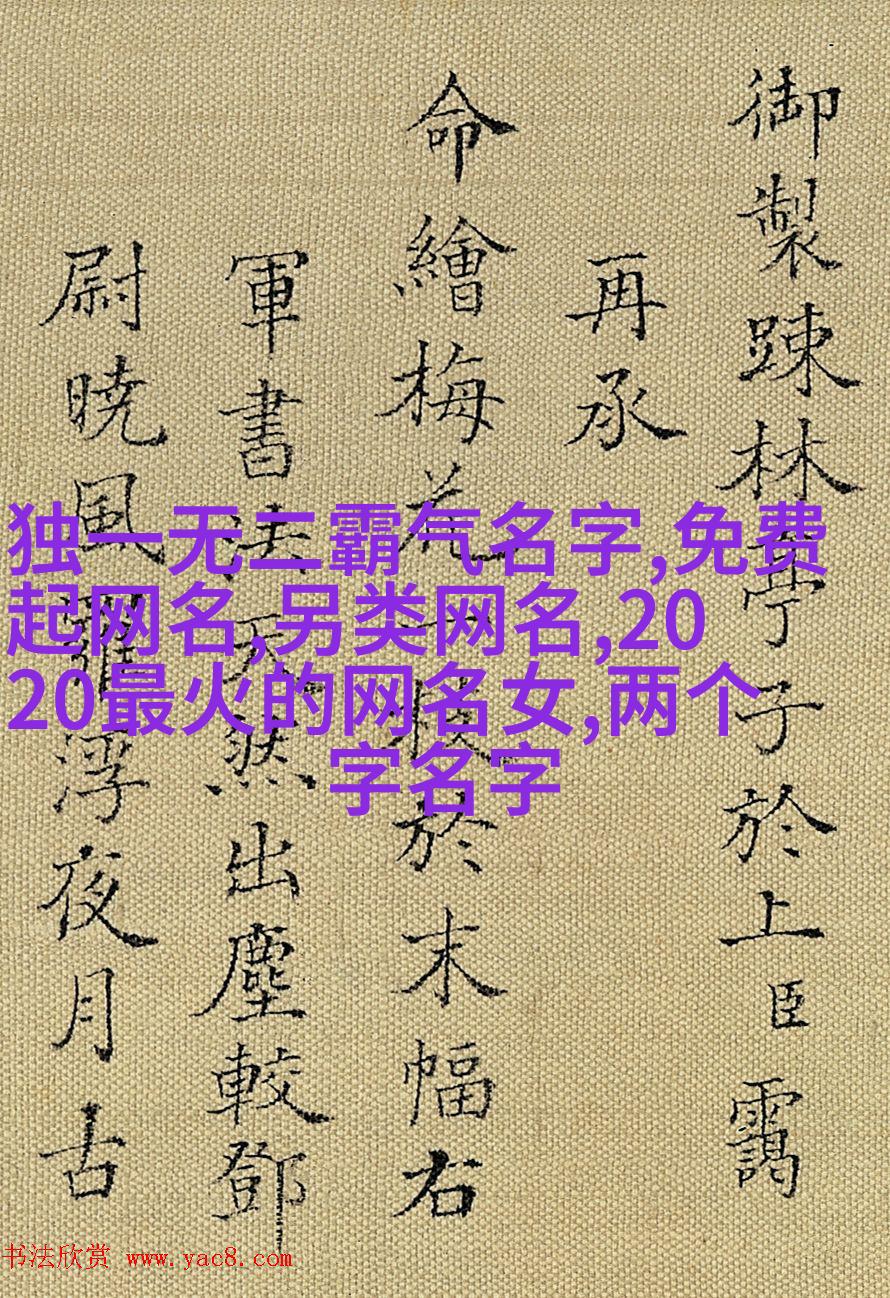 御製踈林亭子於上臣靄
再承
命繪梅花於末幅右
軍書法天然出塵較鄧
尉曉風羅浮夜月古
独一无二霸气名字,免费
起网名,另类网名,20
20最火的网名女,两个
字名字
书法欣赏 www.yac8.com